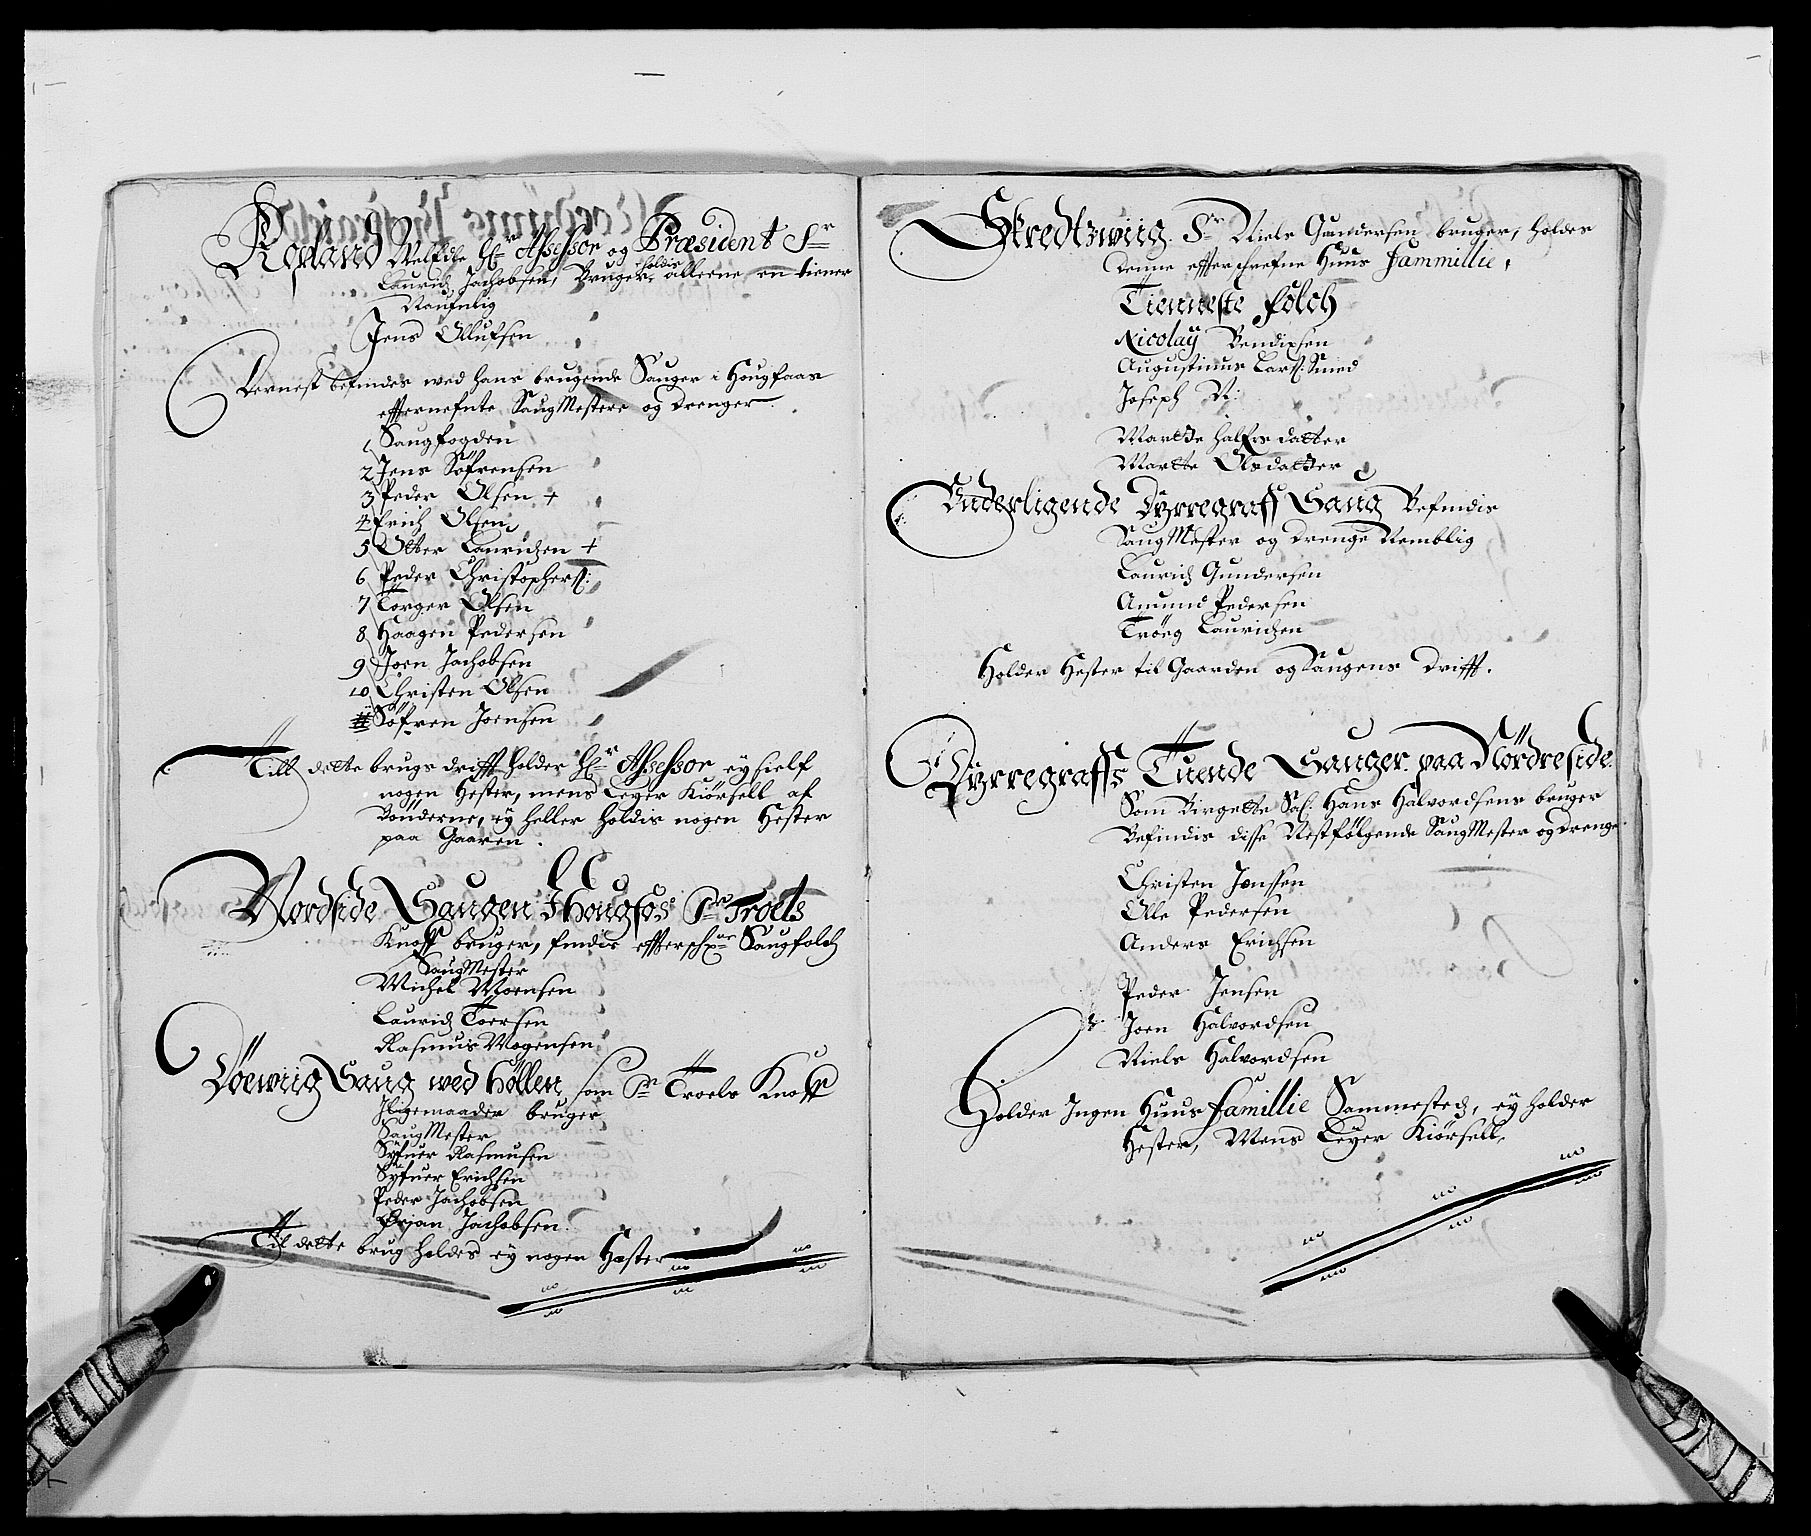 Kopland Welfdle Hr Assessor og Præsident Sr
Lauridz Jachobsen, Bruger, holdis alleene en tiener
Naufnlig
Jens Ollufsen
Dernest befindes wed hans brugende Sauger i Hougfaas
effternefnte Saug Mestere og drenger
1 Saugfogden
2 Jens Söfrensen
3 Peder Olsen +
4 Erich Olsen
5 Otter Lauridzen +
6 Peder Christophers:
7 Torger Olsen
8 Haagen Pedersen
9 Joen Jachobsen
10 Christen Olsen
11 Söfren Joensen
Till dette brugs drifft holder Hr Assessor ey sielf
nogen Hester, mens Leyer Kiörsell af
Bönderne, ey heller holdis nogen Hester
paa Gaaren.
Nordside Saugen I Hougfos Sr Troels
Knoff bruger, findis effterschne Saugfolch
Saug Mester
Michel Moensen
Lauridz Toersen
Rasmus Mogensen
Döewiig Saug wed Höllen, som Sr Troels Knoff
Iligemaader bruger
Saug Mester
Syfuer Rasmusen
Syfuer Erichsen
Peder Jachobsen
Örjan Jachobsen.
Til dette brug holdes ey nogen Hæster
Skredtzwiig. Sr Niels Gundersen bruger, holder
denne effterschrefne Huus Fammillie,
Tienneste Folch
Nicolaÿ Bendixsen
Augustinus Lars: Smed
Joseph N:
Martte Halfrs datter
Martte Olsdatter
Underligende Dyrregraff Saug Befindis
Saug Mester og drenge Nemblig
Lauridz Gundersen
Amund Pedersen
Tröeg Lauridzen
Holder Hester til Gaarden og Saugens Drifft.
Dyrregraffs Tuende Sauger paa Nördreside
Som Birgette Sal: Hans Halvordsens bruger
Befindis disse Nestfölgende Saug Mester og drenge
Christen Jonssen
Olle Pedersen
Anders Erichsen
Peder Jensen
Joen Halvordsen
Niels Halvordsen
Holder Ingen Huus Famillie Sammestedz, ey holder
Hester, Mens Leyer Kiörsell.